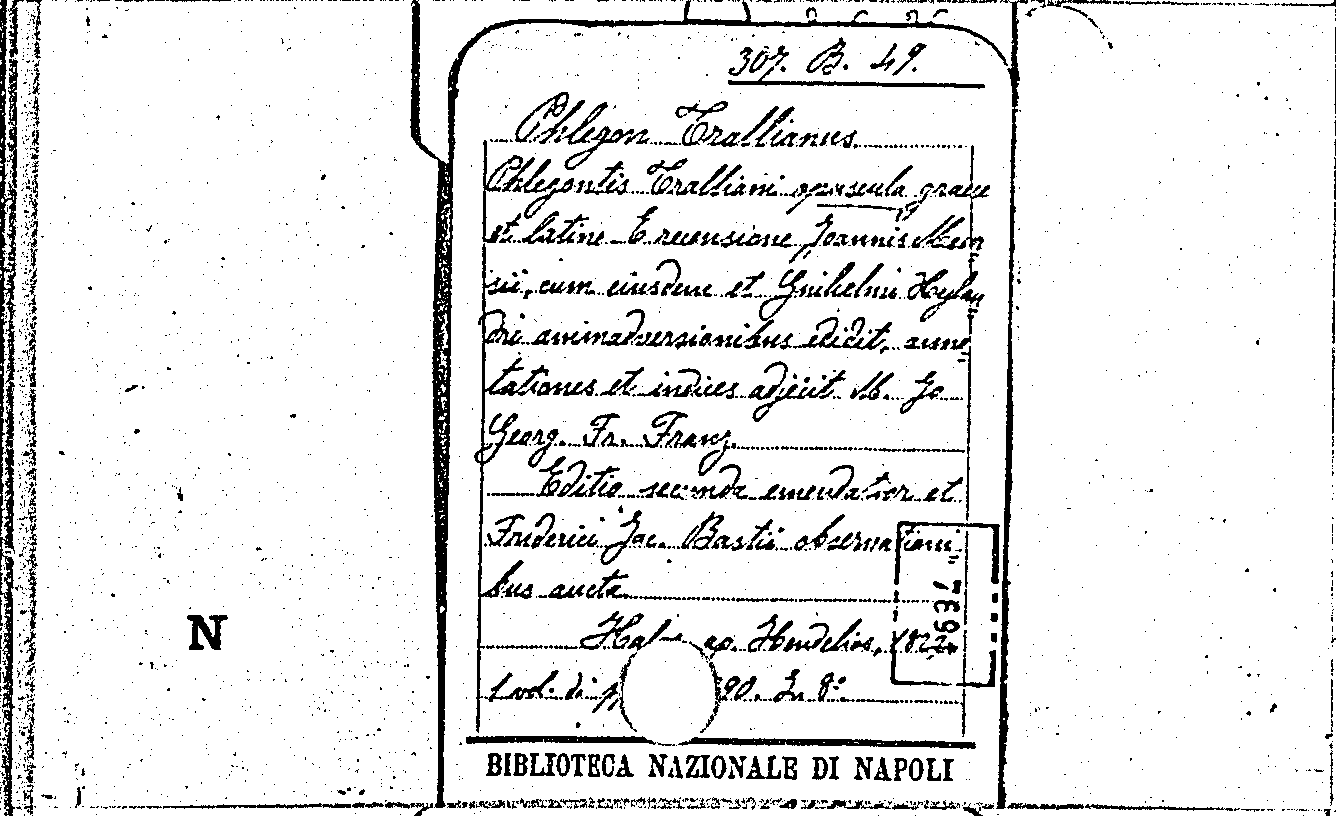 307. B. 49.
Phlegon Trallianus
Phlegontis Tralliani opuscula graece
et latine E recensione Joannis Meur
sii, cum eiusdem et Guilielmi Hylan
dri animadversionibus edidit, anno
tationes et indices adjecit M. Jo
Georg. Fr. Franz.
Editio secunda emendatior et
Friderici Jac. Bastii observationi
bus aucta
ap. Hendelios, 1822
1 vol. di 90. In 8º
1937
N
BIBLIOTECA NAZIONALE DI NAPOLI